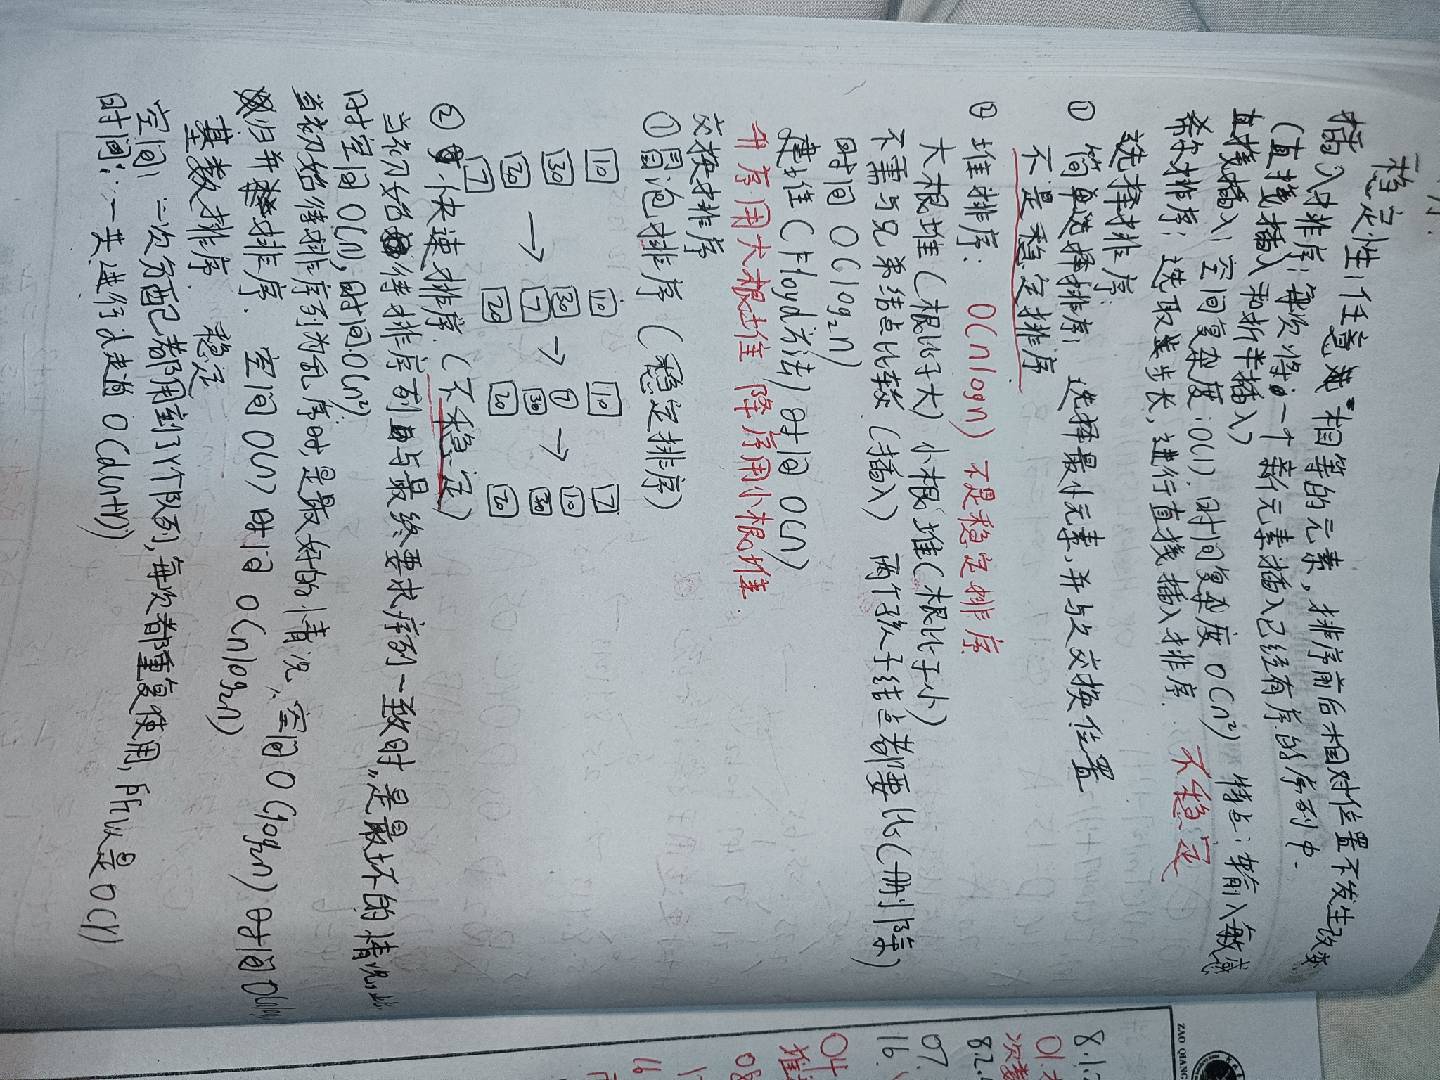 序.
稳定性:任意 相等的元素,排序前后相对位置不发生改变
插入排序:每次将一个新元素插入已经有序的序列中.
(直接插入和折半插入)
直接插入:空间复杂度:O(1).时间复杂度O(n²) 特点:输入敏感
希尔排序:选取步长,进行直接插入排序. 不稳定
选择排序:
① 简单选择排序: 选择最小元素,并与之交换位置
不是稳定排序
② 堆排序: O(nlogn) 不是稳定排序
大根堆(根比子大) 小根堆(根比子小)
不需与兄弟结点比较(插入) 两个孩子结点都要比(删除)
时间 O(log₂n)
建堆(Floyd方法)时间 O(n)
升序用大根堆 降序用小根堆
交换排序
①冒泡排序(稳定排序)
10 10 10 7
30 30 7 10
→ → →
20 7 30 30
7 20 20 20
② 快速排序.(不稳定)
当初始待排序列与最终要求序列一致时,是最坏的情况,此
时空间O(n),时间O(n²).
当初始待排序列为乱序时,是最好的情况,空间O(log₂n)时间O(nlog
归并排序. 空间O(n)时间 O(nlog₂n)
基数排序. 稳定
空间:一次分配都用到了r个队列,每次都重复使用,所以是O(r)
时间:一共进行d趟 O(d(n+r))
ZAO QIANG
8.1.2
01.
次数
8.2.
07.
16.
04
堆
08
1
16